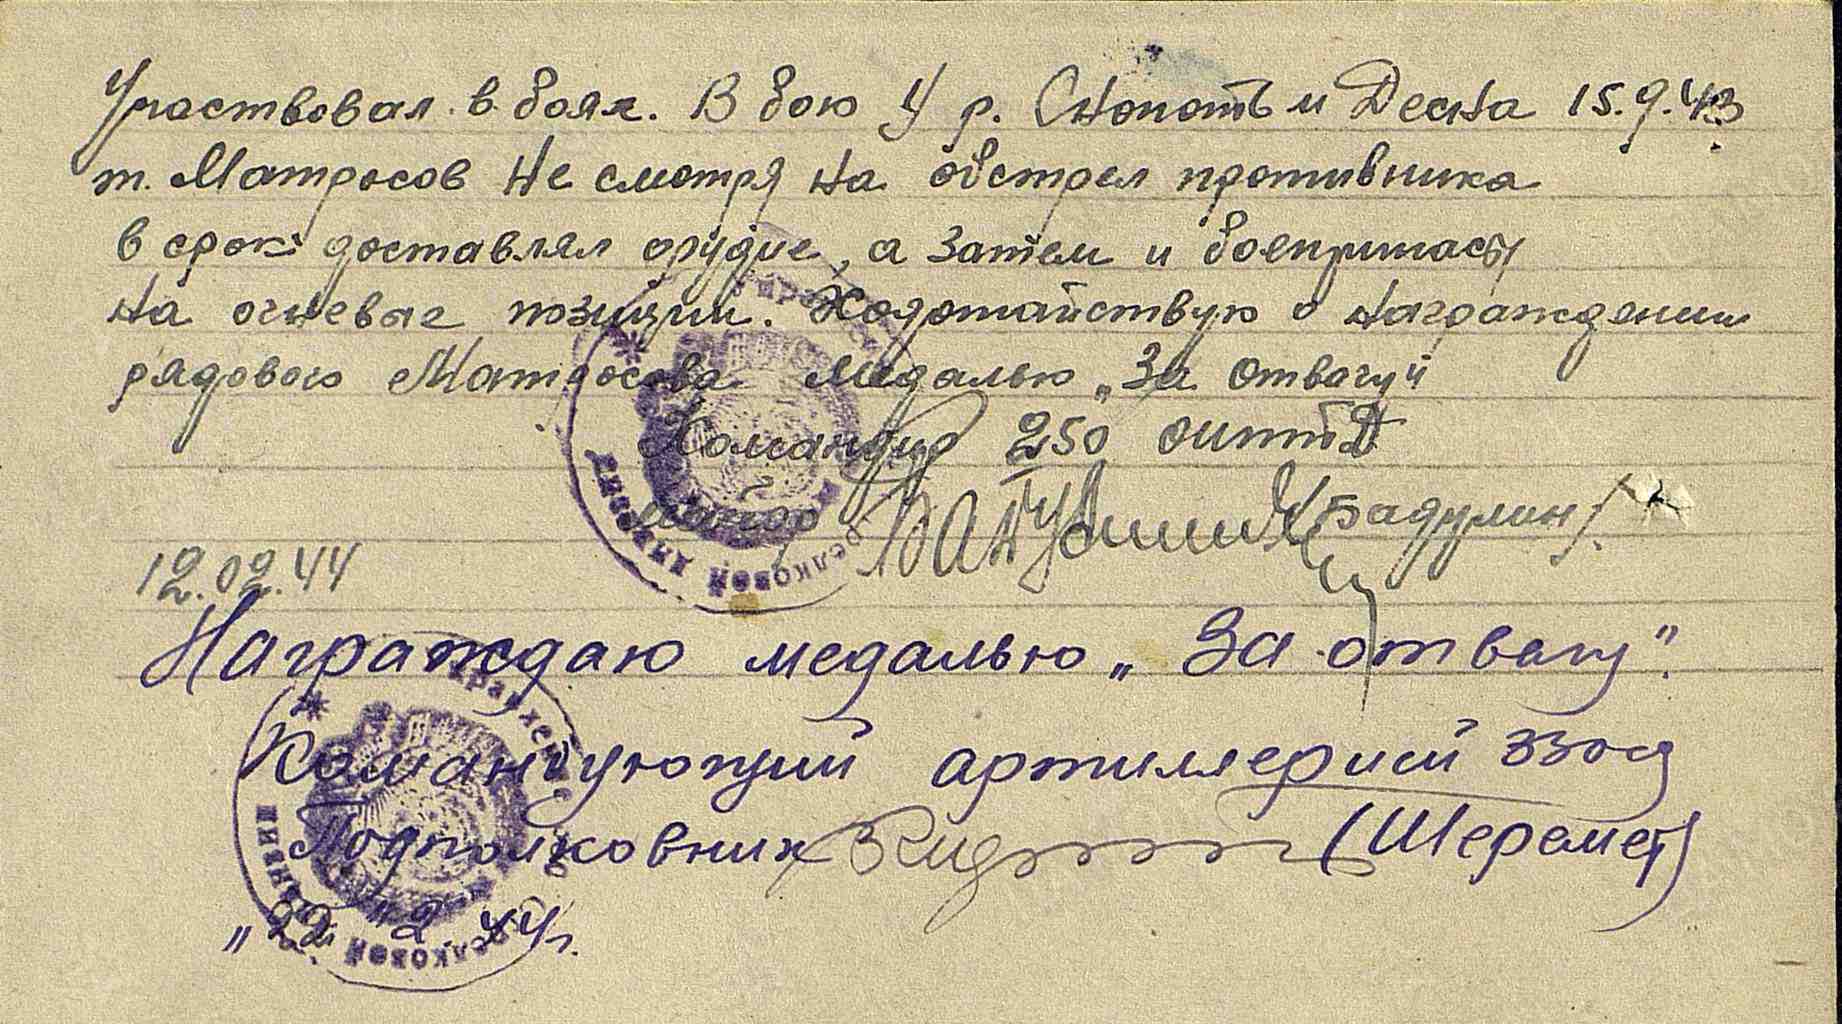 Участвовал в боях. В бою у р. Снопоть и Десна 15.9.43
т. Матросов не смотря на обстрел противника
в срок доставлял орудие, а затем и боеприпасы
на огневые позиции. Ходотайствую о награждении
рядового Матросова медалью „За отвагу"
Командир 250 оиптд
майор (Бадулин)
12.02.44
Награждаю медалью „За отвагу".
Командующий артиллерией 330 сд
Подполковник (Шеремет)
„22" 2 44г.
стрелковой дивизии
стрелковой дивизии